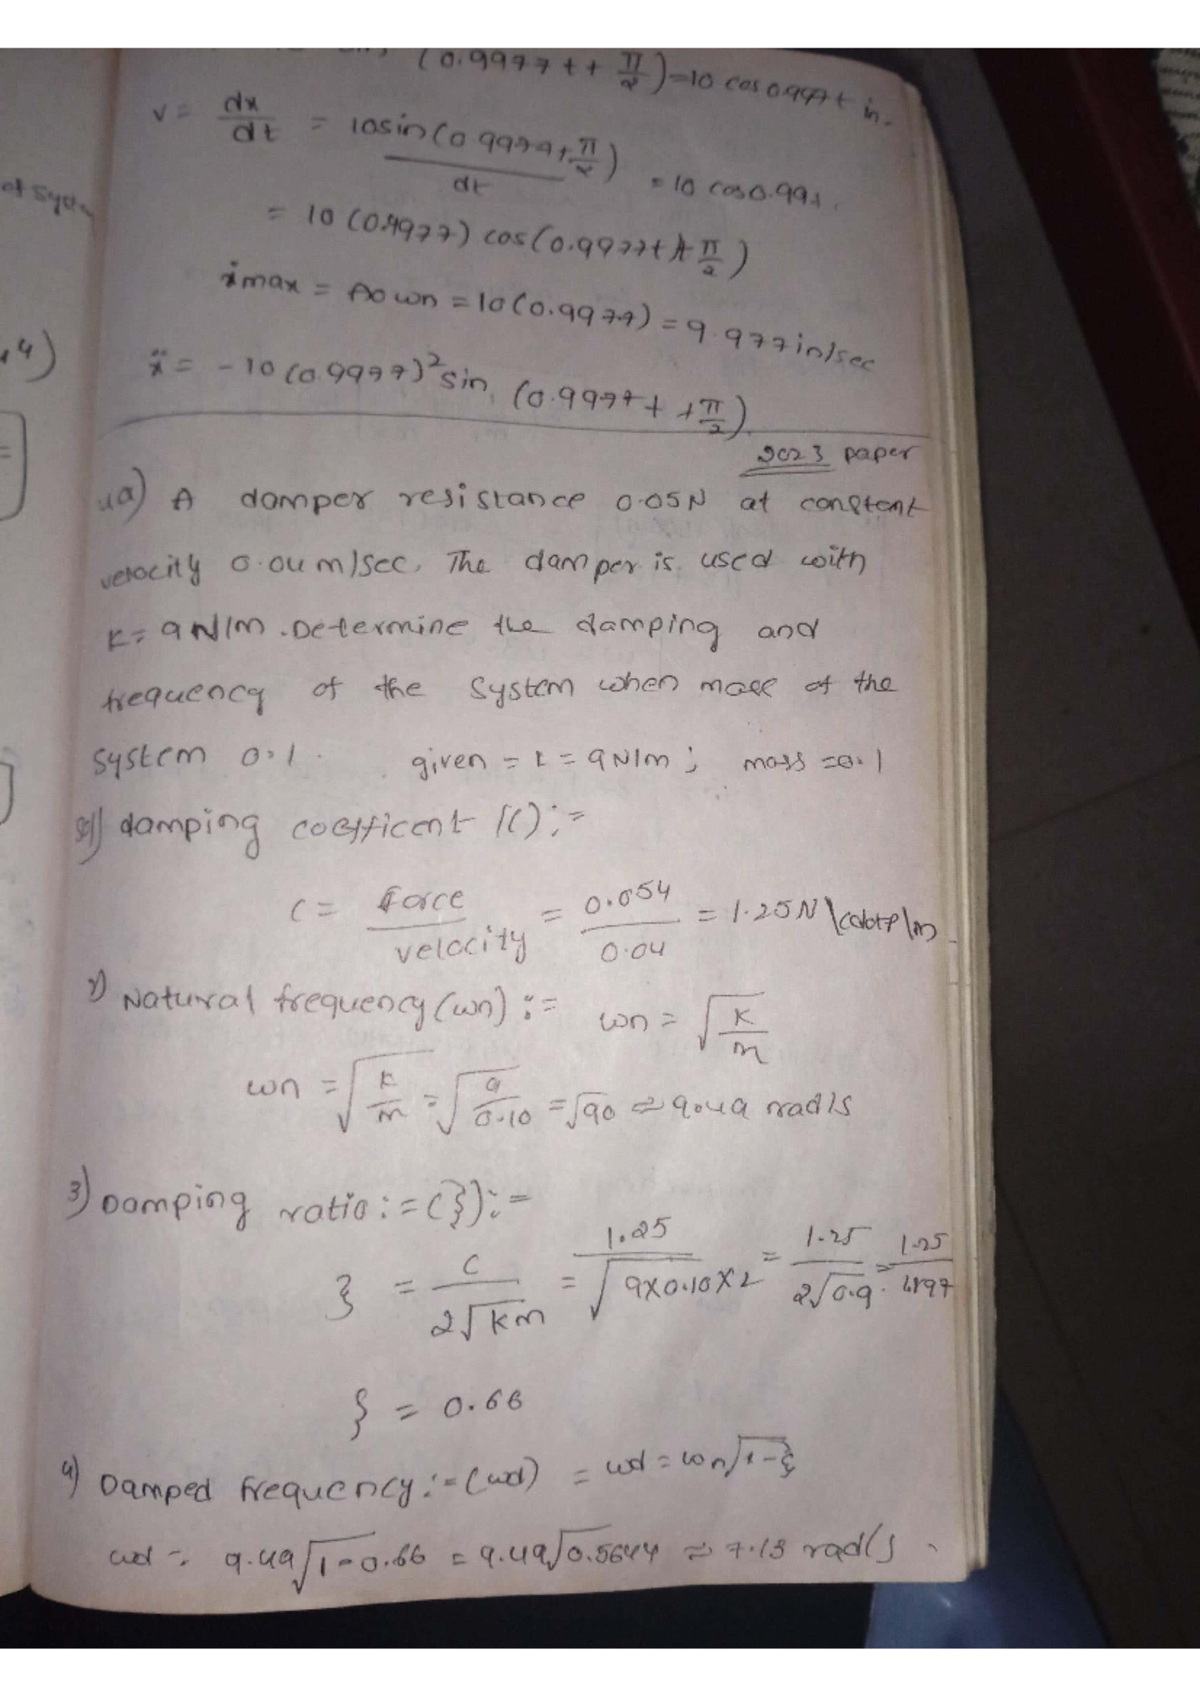 (0.9977t + π/2) = 10 cos 0.997t in.
v = dx/dt = 10sin(0.9979+π/2)/dt = 10 cos 0.99
= 10 (0.9977) cos(0.9977t + π/2)
of system
ẋmax = A0 wn = 10(0.9977) = 9.977 in/sec
,4)
ẍ = -10 (0.9977)² sin (0.997t + π/2)
2023 paper
4a) A damper resistance 0.05N at constant
velocity 0.04 m/sec. The damper is used with
K = 9 N/m. Determine the damping and
frequency of the system when mass of the
system 0.1. given = k = 9N/m; mass = 0.1
sol) damping coefficent (C) :=
C = force/velocity = 0.054/0.04 = 1.25N \cdotp\m
2) Natural frequency (wn) := wn = √K/m
wn = √K/m = √9/0.10 = √90 ≈ 9.49 rad/s
3) Damping ratio := (}) :=
} = C/2√km = 1.25/√9X0.10X2 = 1.25/2√0.9 = 1.25/1.897
} = 0.66
4) Damped frequency :- (wd) = wd = wn√1-ξ
wd = 9.49√1-0.66 = 9.49√0.5644 ≈ 7.13 rad/s.